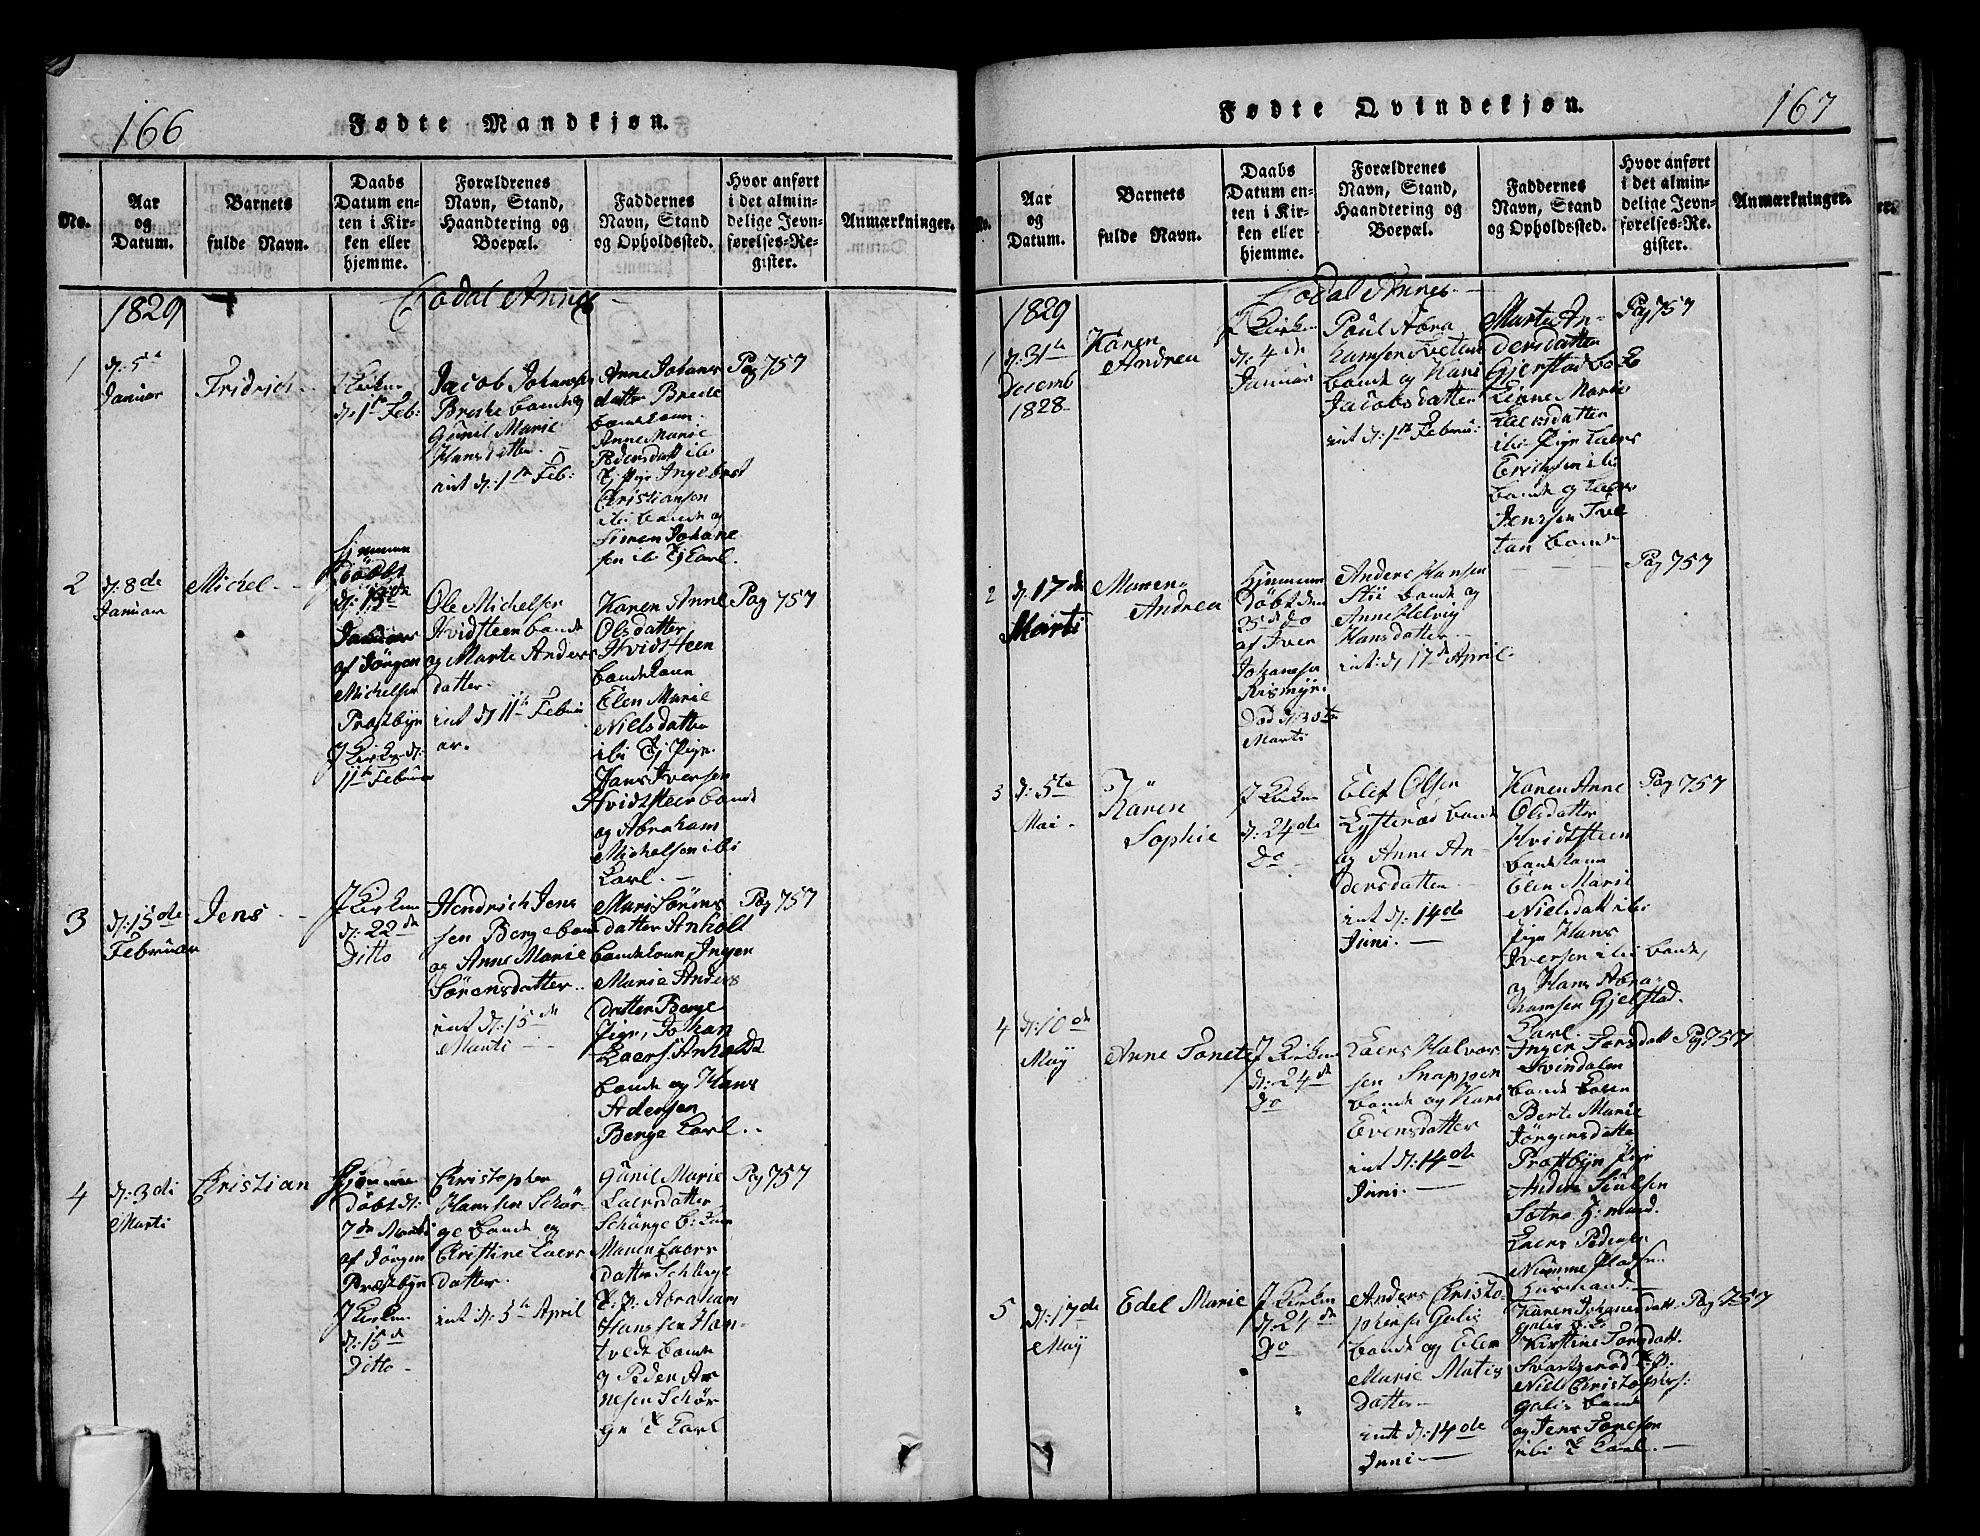 166
Fødte Mandkjøn.
No.
Aar
og
Datum.
Barnets
fulde Navn.
Daabs
Datum en-
ten i Kir-
ken eller
hjemme.
Forældrenes
Navn, Stand,
Haandtering og
Boepæl.
Faddernes
Navn, Stand
og Opholdssted.
Hvor anført
i det almin-
delige Jevn-
førelses-Re-
gister.
Anmærkninger.
1829
1
d: 5te
Januar
Fridrich
d: 1ste Feb:
Jacob Johansen
Gunil Marie
Hansdatter
int d: 1ste Feb:
Anne Johans
datter Brede
bondekone
Anne Marie
Pedersdatt ibi
Ingebret
Christiansen
ibi bonde og
Simen Johane
sen ibi Karl.
Pag 757
2
d: 8de
Januar
Michel
Hjemme
Döbt
d: 13de
Januar
af Jörgen
Michelsen
Præstbyn
J Kirken d:
11te Februar
Ole Michelsen
Hvidsteen bonde
og Marte Anders
datter
int d: 11te Febru
ar.
Karen Anne
Olsdatter
Hvidsteen
bondekone
Elen Marie
Nielsdatter
ibi
Hans Iversen
Hvidtsteen bonde
og Abraham
Michelsen ibi
Karl.
Pag 757
3
d: 15de
Februar
Jens
J Kirken
d: 22de
Ditto
Hendrich Jens
sen Berge bon
og Anne Marie
Sørensdatter
int d: 15de
Marti
Mari Sørens
datter Anholt
bondekone, Inger
Marie Anders
datter Berge
Pige, Johan
Laers Anholdt
bonde og Hans
Adensen
Berge Karl
Pag 757
4
d: 3di
Marti
Cristian
Hjemme
döbt d:
7de Marti
af Jörgen
Præstbyn
J Kirken
d: 15de
Ditto
Christopher
Hansen Schör-
ge bonde og
Christine Laers
datter
int d: 5te April
Gunil Marie
Laersdatter
Schörge b: kone
Maren Laers
datter Schörge
Abraham
Hansen Han-
tvedt bonde
og Peder Ar
nesen Schör
ge Karl
Pag 757
167
Fødte Qvindekjøn.
No.
Aar
og
Datum.
Barnets
fulde Navn.
Daabs
Datum en-
ten i Kir-
ken eller
hjemme.
Forældrenes
Navn, Stand,
Haandtering og
Boepæl.
Faddernes
Navn, Stand
og Opholdssted.
Hvor anført
i det almin-
delige Jevn-
førelses-Re-
gister.
Anmærkninger.
1829
1
d: 31te
Decemb
1828
Karen
Andrea
J Kirken
d: 4de
Januar
Poul Abra
hamsen Tvetan
bonde og Kari
Jacobsdatter
int d: 1ste Februa:
Marte An-
dersdatten
Gjerstad
Marie
Laersdatten
ibi Pige Laers
Erichsen ibi
bonde og Laers
Jenssen Tve
tan bonde
Pag 757
2
d: 17de
Marti
Maren
Andrea
Hjemme
Döbt den
25de Do
af Iver
Johansen
Rismyr
Död d: 30te
Marti
Anders Hansen
bonde og
Anne Helvig
Hansdatter
int: d: 17de April
Pag 757
3
d: 5te
Mai
Karen
Sophie
J Kirken
d: 24de
Do
Elef Olsen
Lysteröd bonde
og Anne An
dersdatten
int d: 14de
Juni
Karen Anne
Olsdatter
Hvidtsteen
bondekone
Elen Marie
Nielsdatt ibi
Pige Hans
Iversen ibi bonde,
og Hans Abra
hamsen Gjelstad.
Karl.
Pag 757
4
d: 10de
May
Anne Tonete
J Kirken
d: 24de
Do
Laers Halvor
sen Snappen
bonde og Kari
Evensdatter
int d: 14de
Juni
Inger Torsdatt
Svindalen
bonde kone
Berte Marie
Jörgensdatter
Prestbyn Pige
Anders
Laers Pedersen
Husmand
Pag 757
5
d: 17de
May
Edel Marie
J Kirken
d: 24de
Do
Anders Christo-
phersen Galis
bonde og Elen
Marie Matis
datter
int d: 14de
Juni
Karen Johannesdatt.
Galis
Kirstine Torsdatt.
Niels Christophers:
Galis bonde
og Jens Tonesen
ibi Karl.
Pag 757